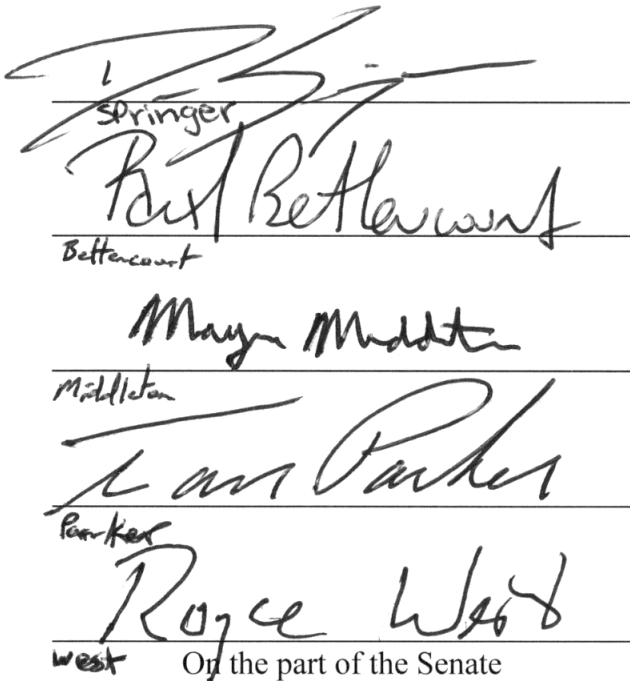 Springer
Paul Bettencourt
Bettencourt
Mayes Middleton
Middleton
Tan Parker
Parker
Royce West
West
On the part of the Senate